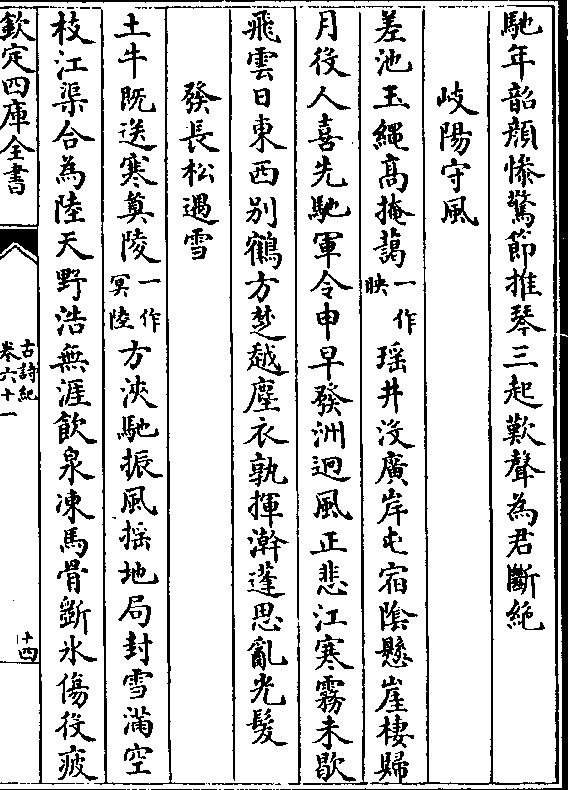 馳年韶顔慘驚節推琴三起歎聲為君斷絶
岐陽守風
差池玉繩髙掩藹一作映瑶井没廣岸屯宿隂懸崖棲歸
月役人喜先馳軍令申早發洲迥風正悲江寒霧未歇
飛雲日東西别鶴方楚越塵衣孰揮澣蓬思亂光髮
發長松遇雪
土牛既送寒蓂陵一作冥陸方浹馳振風摇地局封雪滿空
枝江渠合為陸天野浩無涯飲泉凍馬骨斵氷傷役疲
欽定四庫全書
古詩紀
卷六十一
十四